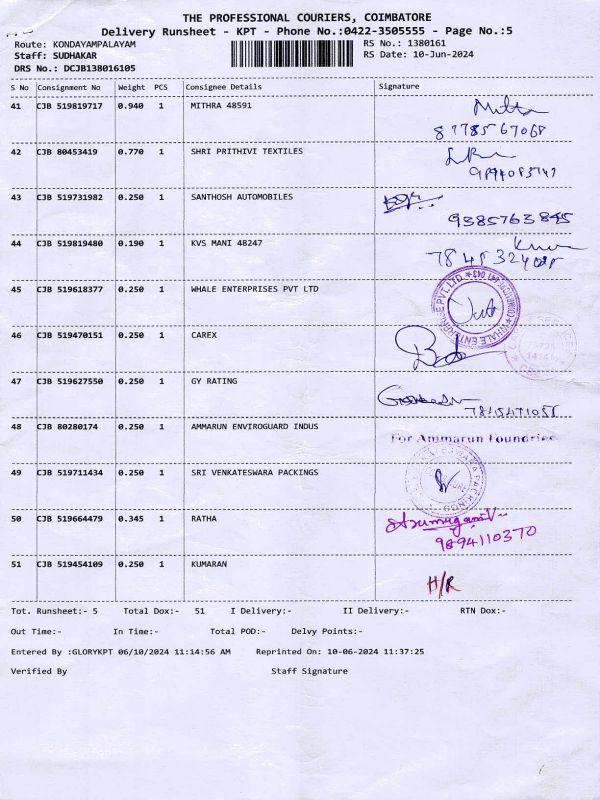 THE PROFESSIONAL COURIERS, COIMBATORE
Delivery Runsheet - KPT - Phone No.:0422-3505555 - Page No.:5
Route: KONDAYAMPALAYAM
RS No.: 1380161
Staff: SUDHAKAR
RS Date: 10-Jun-2024
DRS No.: DCJB138016105
S No Consignment No Weight PCS Consignee Details Signature
41 CJB 519819717 0.940 1 MITHRA 48591
Mitta
8778567068
42 CJB 80453419 0.770 1 SHRI PRITHIVI TEXTILES
43 CJB 519731982 0.250 1 SANTHOSH AUTOMOBILES
9385763845
44 CJB 519819480 0.190 1 KVS MANI 48247
45 CJB 519618377 0.250 1 WHALE ENTERPRISES PVT LTD
WHALE ENTERPRISE PVT. LTD.
46 CJB 519470151 0.250 1 CAREX
47 CJB 519627550 0.250 1 GY RATING
7845471055
48 CJB 80280174 0.250 1 AMMARUN ENVIROGUARD INDUS
For Ammarun Foundries
49 CJB 519711434 0.250 1 SRI VENKATESWARA PACKINGS
50 CJB 519664479 0.345 1 RATHA
ArumugamV
9894110370
51 CJB 519454109 0.250 1 KUMARAN
H/R
Tot. Runsheet:- 5 Total Dox:- 51 I Delivery:- II Delivery:- RTN Dox:-
Out Time:- In Time:- Total POD:- Delvy Points:-
Entered By :GLORYKPT 06/10/2024 11:14:56 AM Reprinted On: 10-06-2024 11:37:25
Verified By Staff Signature